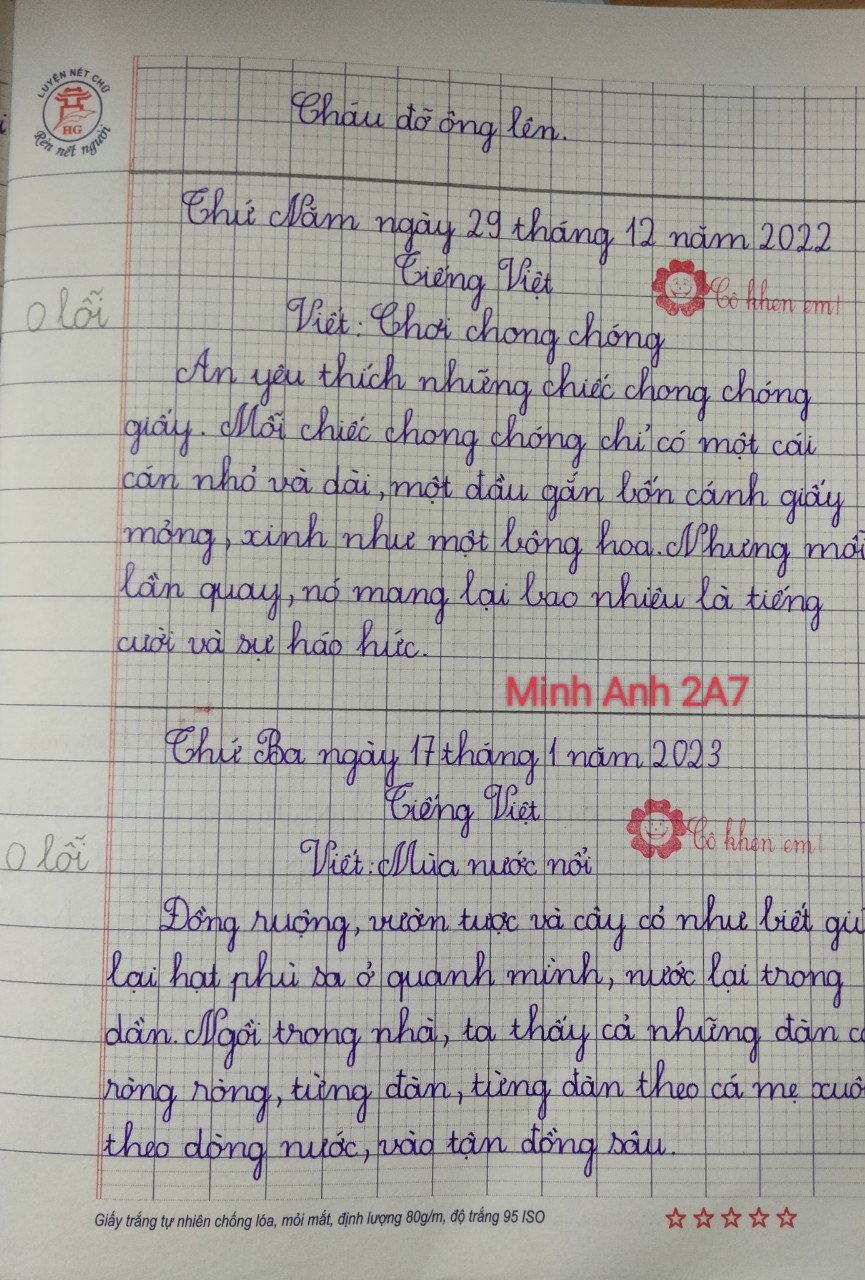 LUYỆN NÉT CHỮ
HG
Rèn nết người
Cháu đỡ ông lên.
Thứ Năm ngày 29 tháng 12 năm 2022
Tiếng Việt
Cô khen em!
0 lỗi
Viết: Chơi chong chóng
An yêu thích những chiếc chong chóng
giấy. Mỗi chiếc chong chóng chỉ có một cái
cán nhỏ và dài, một đầu gắn bốn cánh giấy
mỏng, xinh như một bông hoa. Nhưng mỗi
lần quay, nó mang lại bao nhiêu là tiếng
cười và sự háo hức.
Minh Anh 2A7
Thứ Ba ngày 17 tháng 1 năm 2023
Tiếng Việt
Cô khen em!
0 lỗi
Viết: Mùa nước nổi
Đồng ruộng, vườn tược và cây cỏ như biết
lại hạt phù sa ở quanh mình, nước lại trong
dần. Ngồi trong nhà, ta thấy cả những đàn
ròng ròng, từng đàn, từng đàn theo cá mẹ
theo dòng nước, vào tận đồng sâu.
Giấy trắng tự nhiên chống lóa, mỏi mắt, định lượng 80g/m, độ trắng 95 ISO